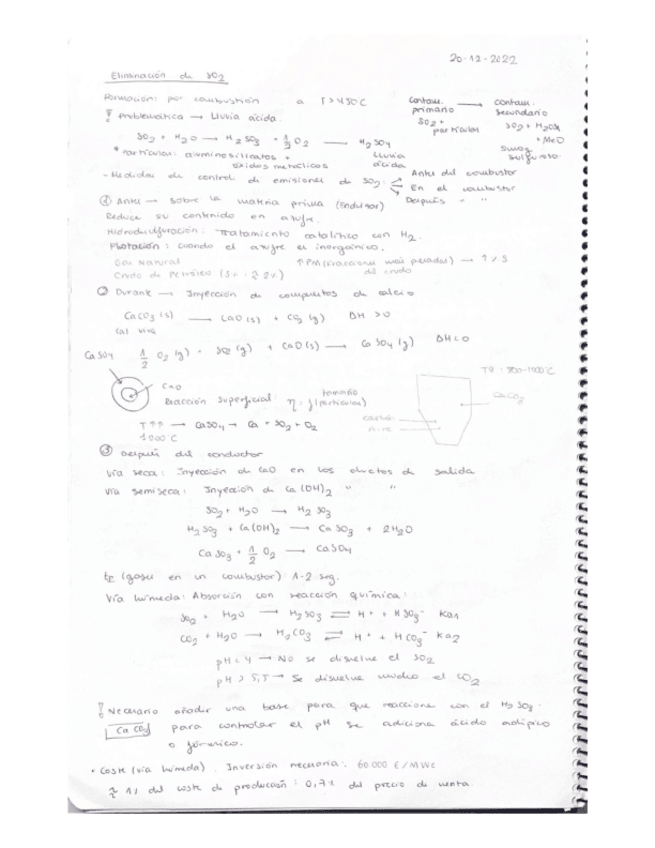 20-12-2022
Eliminación de SO2
Formación: por combustión a T > 450C
contam. primario → contam. secundario
SO2 + partículas
SO2 + H2SO4 + MeO
Smog sulfuroso
! Problemática → Lluvia ácida.
SO2 + H2O → H2SO3 + 1/2 O2 → H2SO4
Lluvia ácida
* Partículas: aluminosilicatos + óxidos metálicos
- Medidas de control de emisiones de SO2:
Antes del combustor
En el combustor
Después " "
① Antes → sobre la materia prima (Endulzar)
Reduce su contenido en azufre.
Hidrodesulfuración: Tratamiento catalítico con H2.
Flotación: cuando el azufre es inorgánico.
Gas Natural
Crudo de Petróleo
↑PM (Fracciones más pesadas) → ↑ % S
del crudo
② Durante → Inyección de compuestos de calcio
CaCO3 (s) → CaO (s) + CO2 (g) ΔH > 0
Cal viva
CaSO4
1/2 O2 (g) + SO2 (g) + CaO (s) → CaSO4 (g) ΔH < 0
CaO
Reacción superficial: η = f (tamaño partículas)
Tª: 800-1000°C
CaCO3
carbón
aire
T↑↑ → CaSO4 → Ca + SO2 + O2
1000°C
③ Después del conductor
Vía seca: Inyección de CaO en los ductos de salida
Vía semiseca: Inyección de Ca(OH)2 " "
SO2 + H2O → H2SO3
H2SO3 + Ca(OH)2 → CaSO3 + 2H2O
CaSO3 + 1/2 O2 → CaSO4
(gases en un combustor) 1-2 seg.
Vía húmeda: Absorción con reacción química:
SO2 + H2O → H2SO3 ⇌ H+ + HSO3- Ka1
CO2 + H2O → H2CO3 ⇌ H+ + HCO3- Ka2
pH < 4 → No se disuelve el SO2
pH > 5,5 → Se disuelve mucho el CO2
! Necesario añadir una base para que reaccione con el H2SO3.
CaCO3 para controlar el pH se adiciona ácido adípico
o fórmico.
• Coste (vía húmeda). Inversión necesaria: 60.000 €/MWe
≈ 1% del coste de producción: 0,7% del precio de venta.